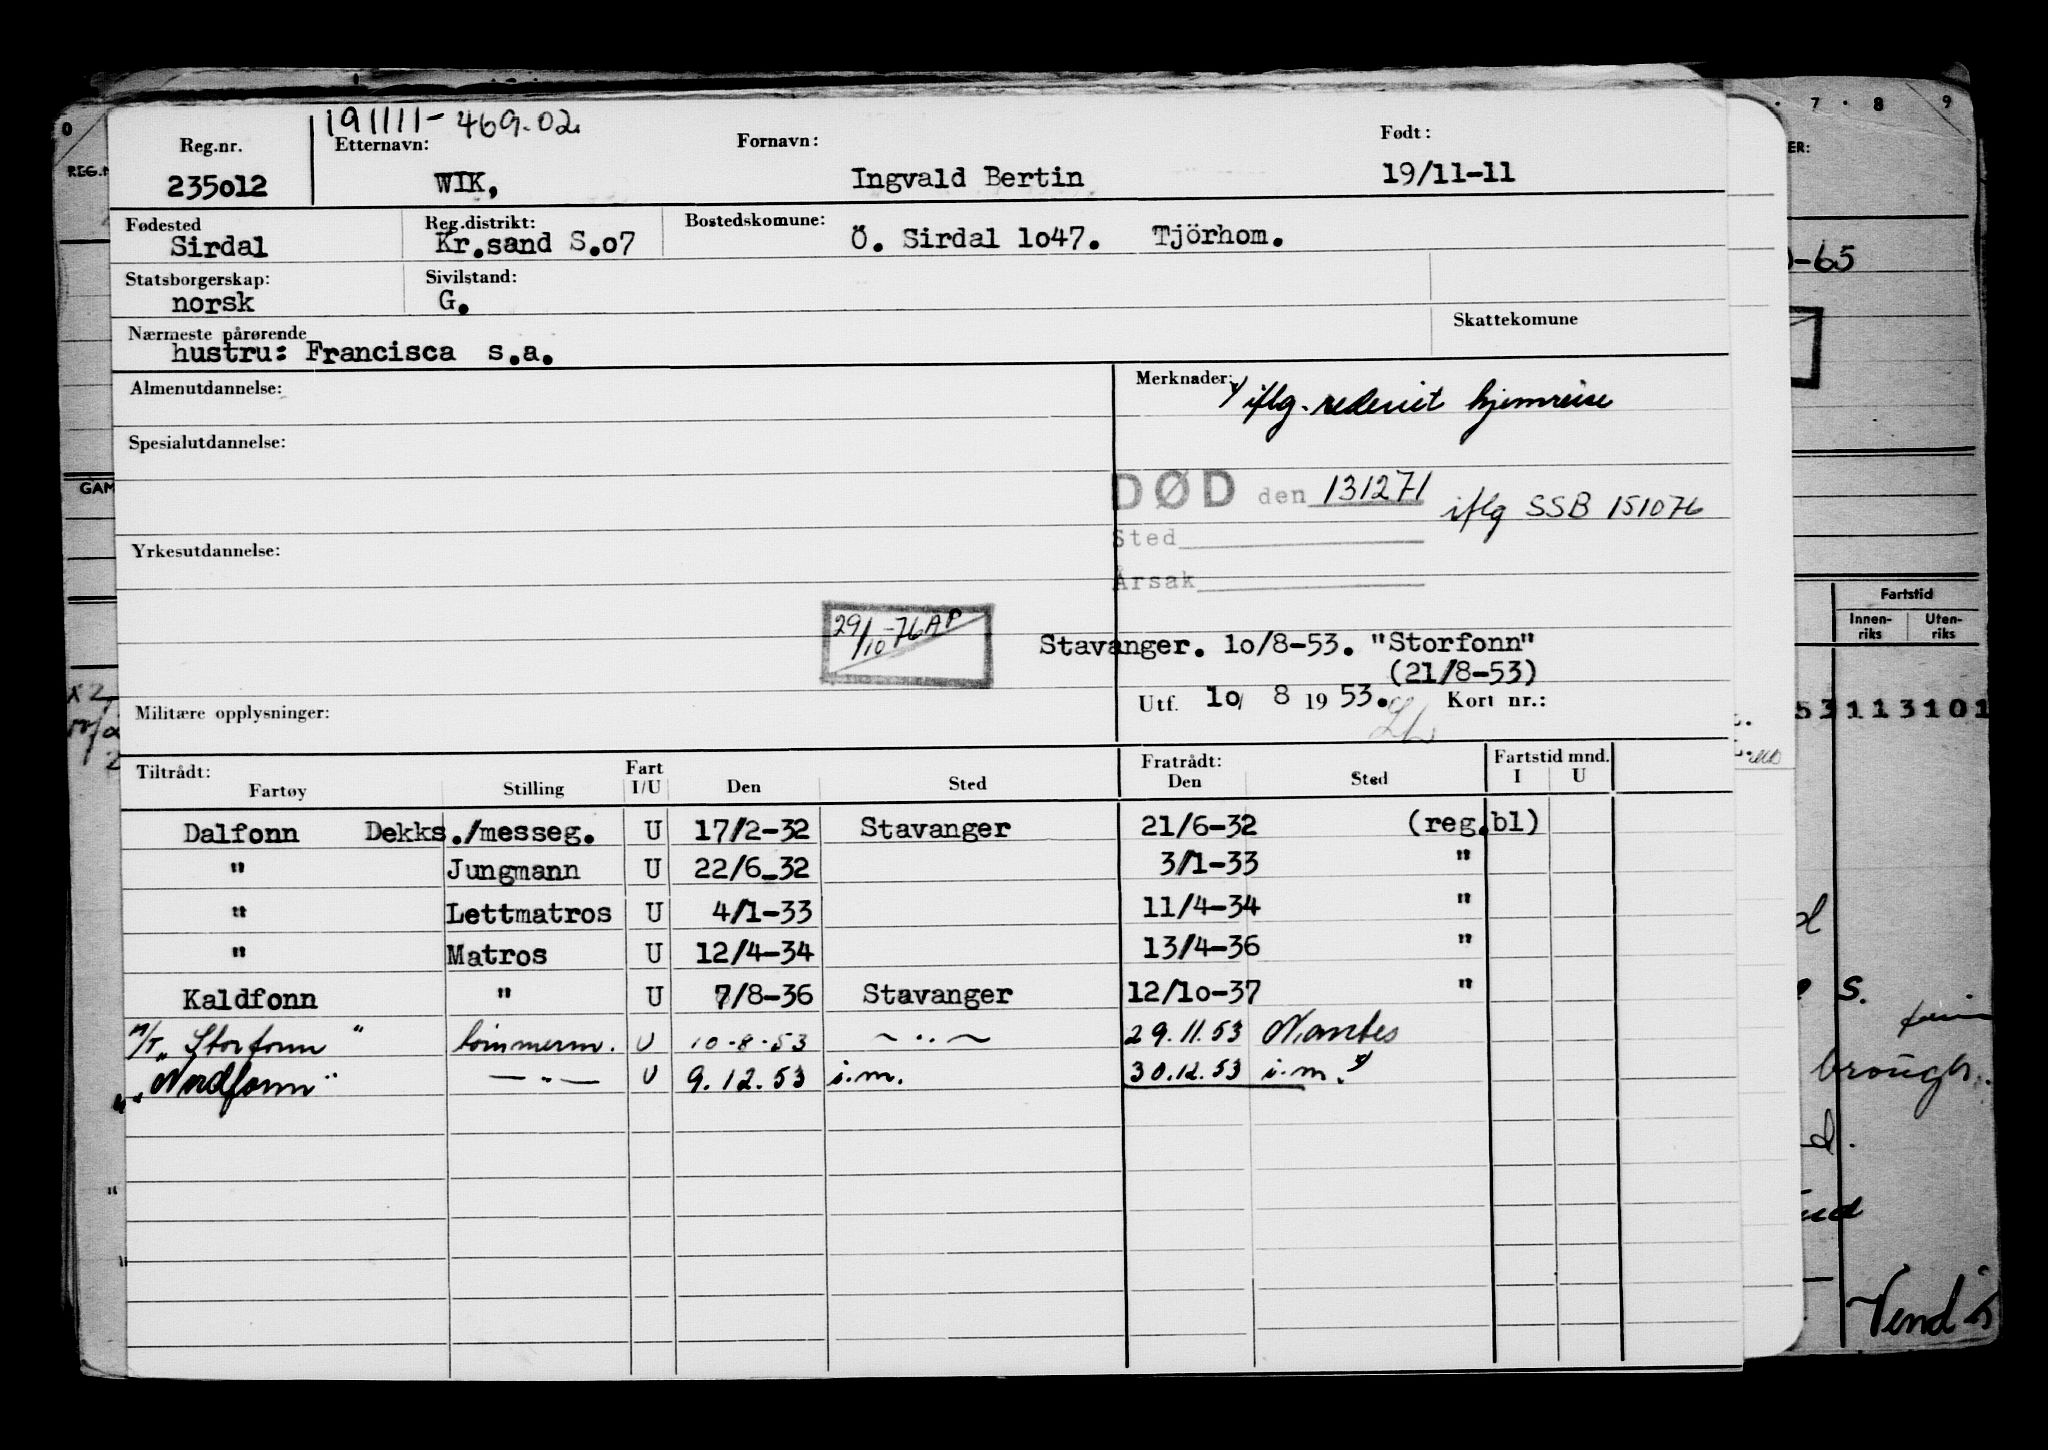 191111-469.02
Reg.nr. Etternavn: Fornavn: Født:
235o12 WIK, Ingvald Bertin 19/11-11
Fødested Reg.distrikt: Bostedskomune:
Sirdal Kr.sand S.o7 Ö. Sirdal 1o47. Tjörhom.
Statsborgerskap: Sivilstand:
norsk G.
Nærmeste pårørende Skattekomune
hustru: Francisca s.a.
Almenutdannelse: Merknader:
x) iflg. rederiet hjemreise
Spesialutdannelse:
DØD den 131271 iflg SSB 151076
Sted
Yrkesutdannelse:
Årsak
29/10-76 AP
Stavanger. 1o/8-53. "Storfonn"
(21/8-53)
Utf. 1o/ 8 19 53. Kort nr.:
Militære opplysninger:
Tiltrådt: Fart Fratrådt: Fartstid mnd.
Fartøy Stilling I/U Den Sted Den Sted I U
Dalfonn Dekks./messeg. U 17/2-32 Stavanger 21/6-32 (reg.bl)
" Jungmann U 22/6-32 3/1-33 "
" Lettmatros U 4/1-33 11/4-34 "
" Matros U 12/4-34 13/4-36 "
Kaldfonn " U 7/8-36 Stavanger 12/1o-37 "
M/T "Storfonn" tømmerm. U 10-8-53 — " — 29.11.53 Nantes
" "Nordfonn" — " — U 9.12.53 i.m. 30.12.53 i.m. x)
0
REG.N
GAM
7 · 8 9
ER:
-65
Fartstid
Innen-riks Uten-riks
53113101
s.
brough.
d.
Vend